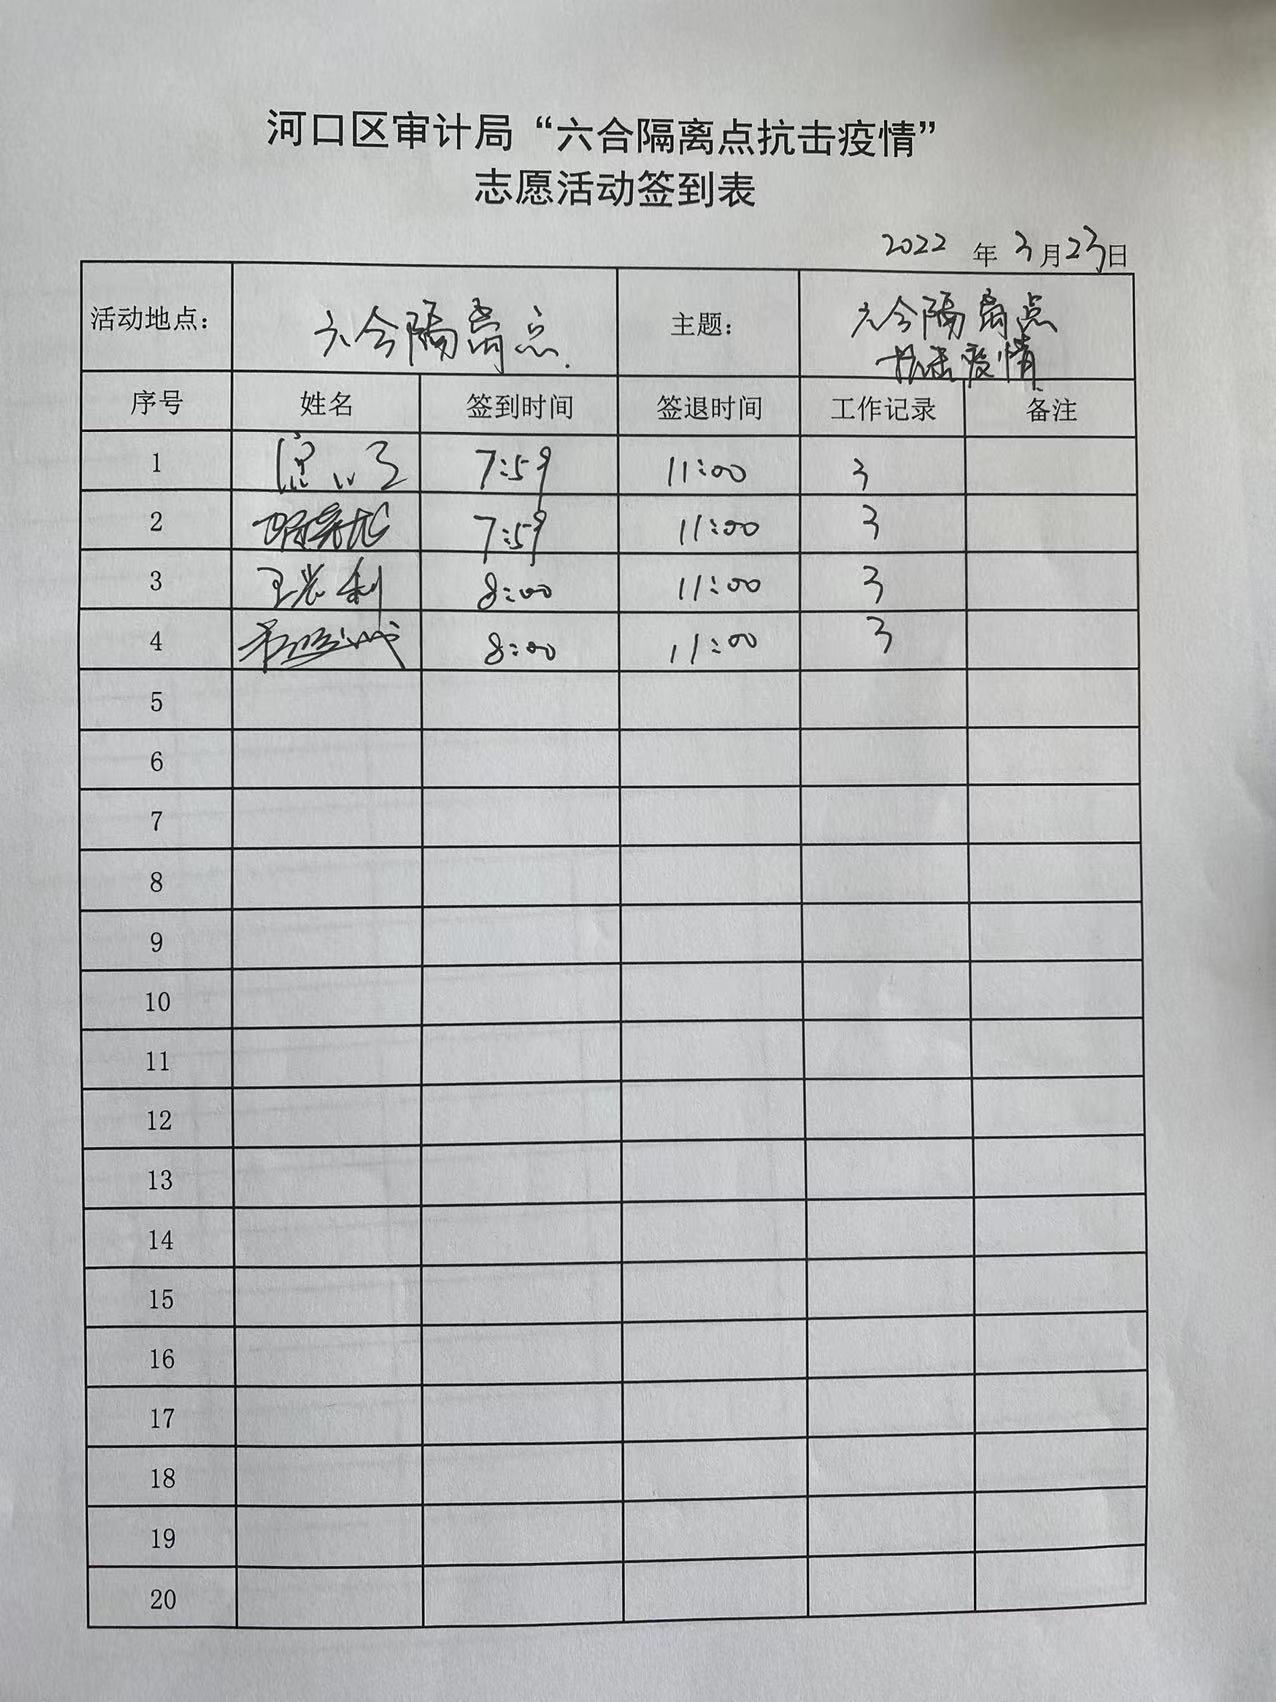 河口区审计局“六合隔离点抗击疫情”
志愿活动签到表
2022 年 3月23日
活动地点: 六合隔离点 主题: 六合隔离点
抗击疫情
序号 姓名 签到时间 签退时间 工作记录 备注
1 7:59 11:00 3
2 7:59 11:00 3
3 王 利 8:00 11:00 3
4 8:00 11:00 3
5
6
7
8
9
10
11
12
13
14
15
16
17
18
19
20